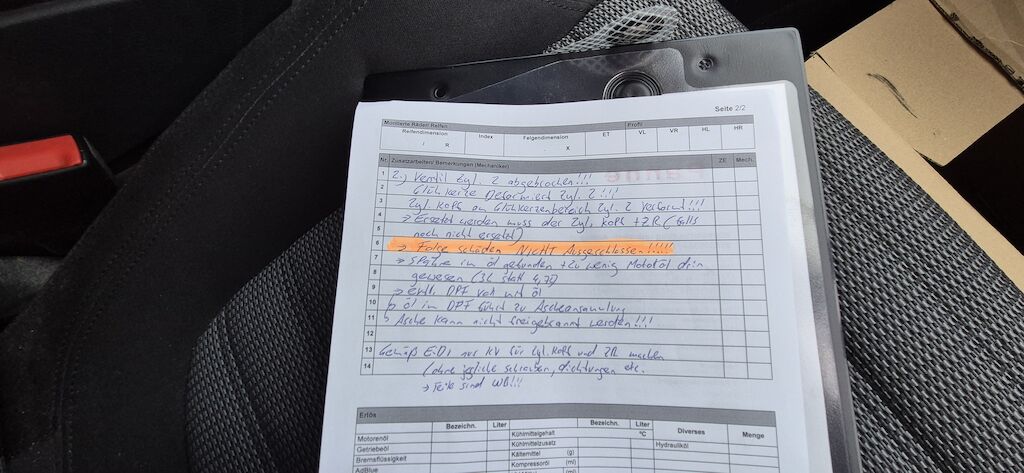 Seite 2/2
Montierte Räder/ Reifen
Profil
Reifendimension Index Felgendimension ET VL VR HL HR
/ R X
Nr. Zusatzarbeiten/ Bemerkungen (Mechaniker) ZE Mech.
1 2.) Ventil Zyl. 2 abgebrochen!!!
2 Glühkerze Deformiert Zyl. 2!!!
3 Zyl. Kopf am Glühkerzenbereich Zyl. 2 verformt!!!
4 → Ersetzt werden muss der Zyl. Kopf + ZR (falls
5 noch nicht ersetzt)
6 → Folge schäden NICHT Ausgeschlossen!!!!!
7 → Späne im Öl gefunden + zu wenig Motoröl drin
8 gewesen (3L statt 4,7L)
9 → evtl. DPF voll mit Öl
10 ↳ Öl im DPF führt zu Ascheansammlung
11 ↳ Asche kann nicht freigebrannt werden!!!
12
13 Gemäß nur KV für Zyl. Kopf und ZR machen
14 (ohne jegliche schrauben, dichtungen etc.
→ Teile sind WB!!!
Erlös
Bezeichn. Liter Bezeichn. Liter Diverses Menge
Motorenöl Kühlmittelgehalt °C Hydrauliköl
Getriebeöl Kühlmittelzusatz
Bremsflüssigkeit Kältemittel (g)
AdBlue Kompressoröl (ml)
(ml)